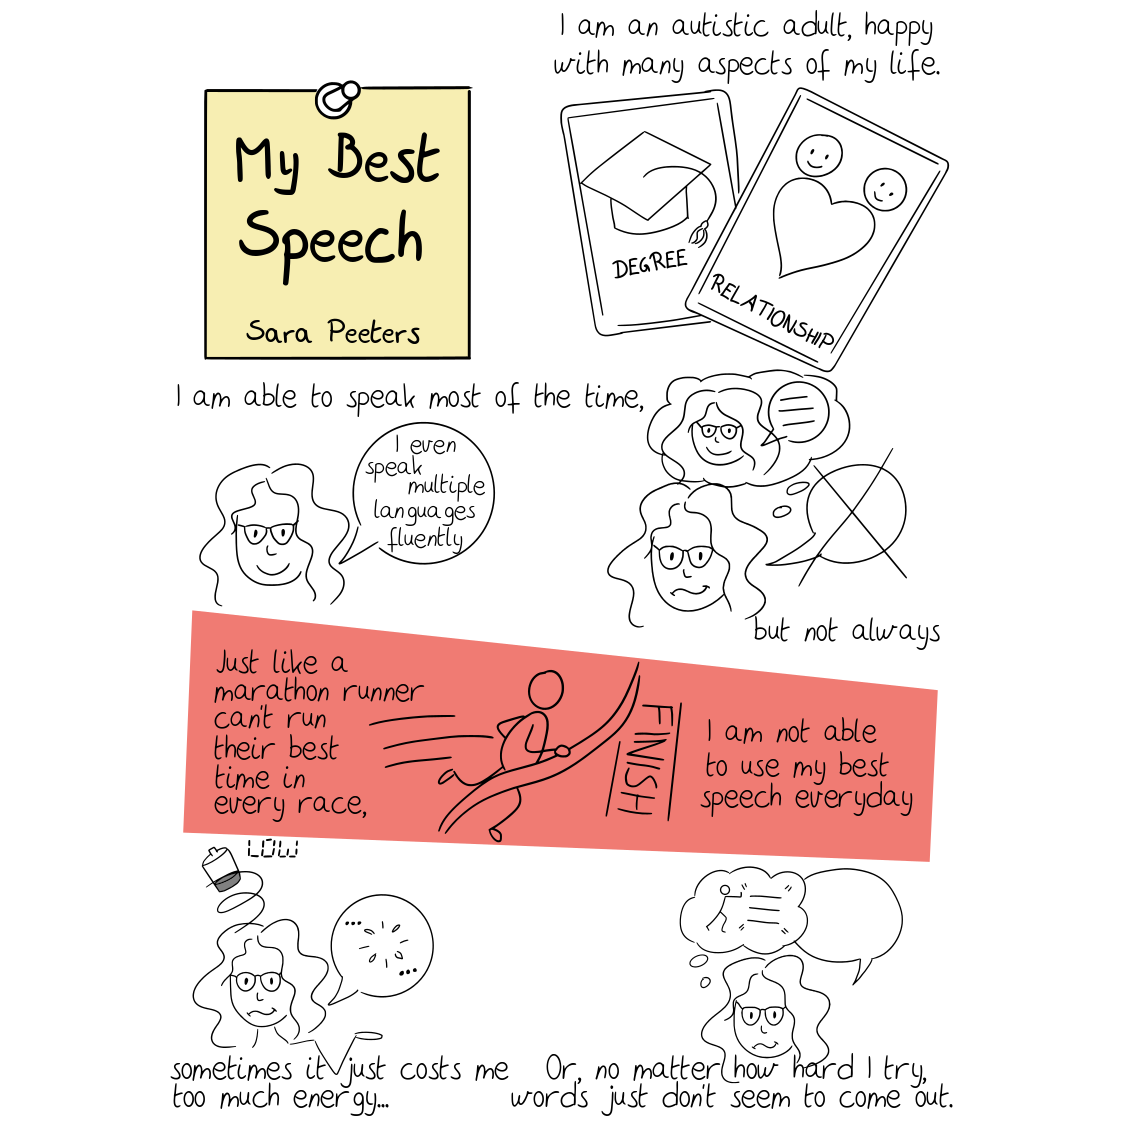 My Best
Speech
Sara Peeters
I am an autistic adult, happy
with many aspects of my life.
DEGREE
RELATIONSHIP
I am able to speak most of the time,
I even
speak
multiple
languages
fluently
but not always
Just like a
marathon runner
can't run
their best
time in
every race,
FINISH
I am not able
to use my best
speech everyday
LOW
...
...
sometimes it just costs me
too much energy...
Or, no matter how hard I try,
words just don't seem to come out.